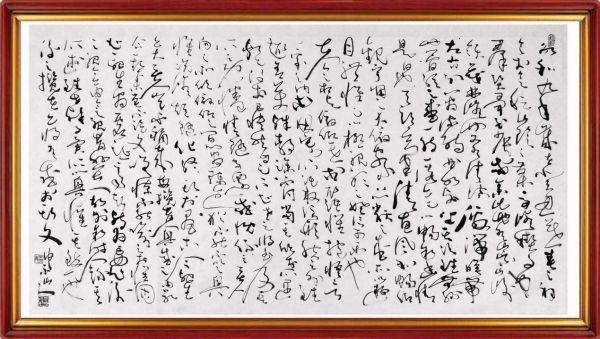 永和九年歲在癸丑暮春之初
會于會稽山陰之蘭亭脩禊事也
群賢畢至少長咸集此地有崇山峻
領茂林脩竹又有清流激湍映帶
左右引以為流觴曲水列坐其次雖無絲竹
管弦之盛一觴一詠亦足以暢敘幽情
是日也天朗氣清惠風和暢仰
觀宇宙之大俯察品類之盛所以遊
目騁懷足以極視聽之娛信可樂也
夫人之相與俯仰一世或取諸懷抱悟言
一室之內或因寄所託放浪形骸之外雖
趣舍萬殊靜躁不同當其欣於所遇
暫得於己快然自足不知老之將至及其
所之既惓情隨事遷感慨係之矣
向之所欣俛仰之間以為陳迹猶不能不以之興
懷況脩短隨化終期於盡古人云死生
亦大矣豈不痛哉每攬昔人興感之由
若合一契未嘗不臨文嗟悼不能喻之於懷固
知一死生為虛誕齊彭殤為妄作後
之視今亦由今之視昔悲夫故列敘時人錄其
所述雖世殊事異所以興懷其致一也
後之攬者亦將有感於斯文